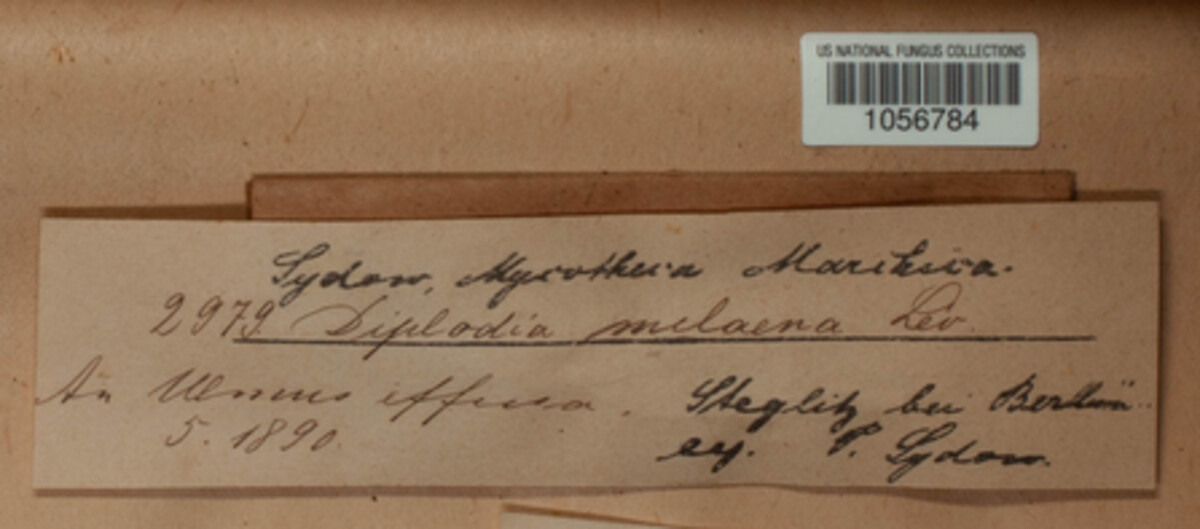 US NATIONAL FUNGUS COLLECTIONS
1056784
Sydow, Mycotheca Marchica.
2979. Diplodia melaena Lév.
An Ulmus effusa. Steglitz bei Berlin
5. 1890. leg. P. Sydow.